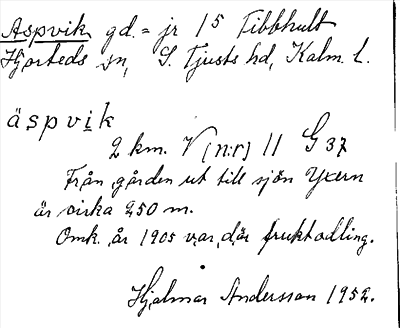 Aspvik gd. = jr 1⁵ Tibbhult
Hjorteds sn, S. Tjusts hd, Kalm. l.
äspvik
2 km. V (n:r) 11 G 37
Från gården ut till sjön Yxern
är cirka 250 m.
Omk. år 1905 var där fruktodling.
Hjalmar Andersson 1952.